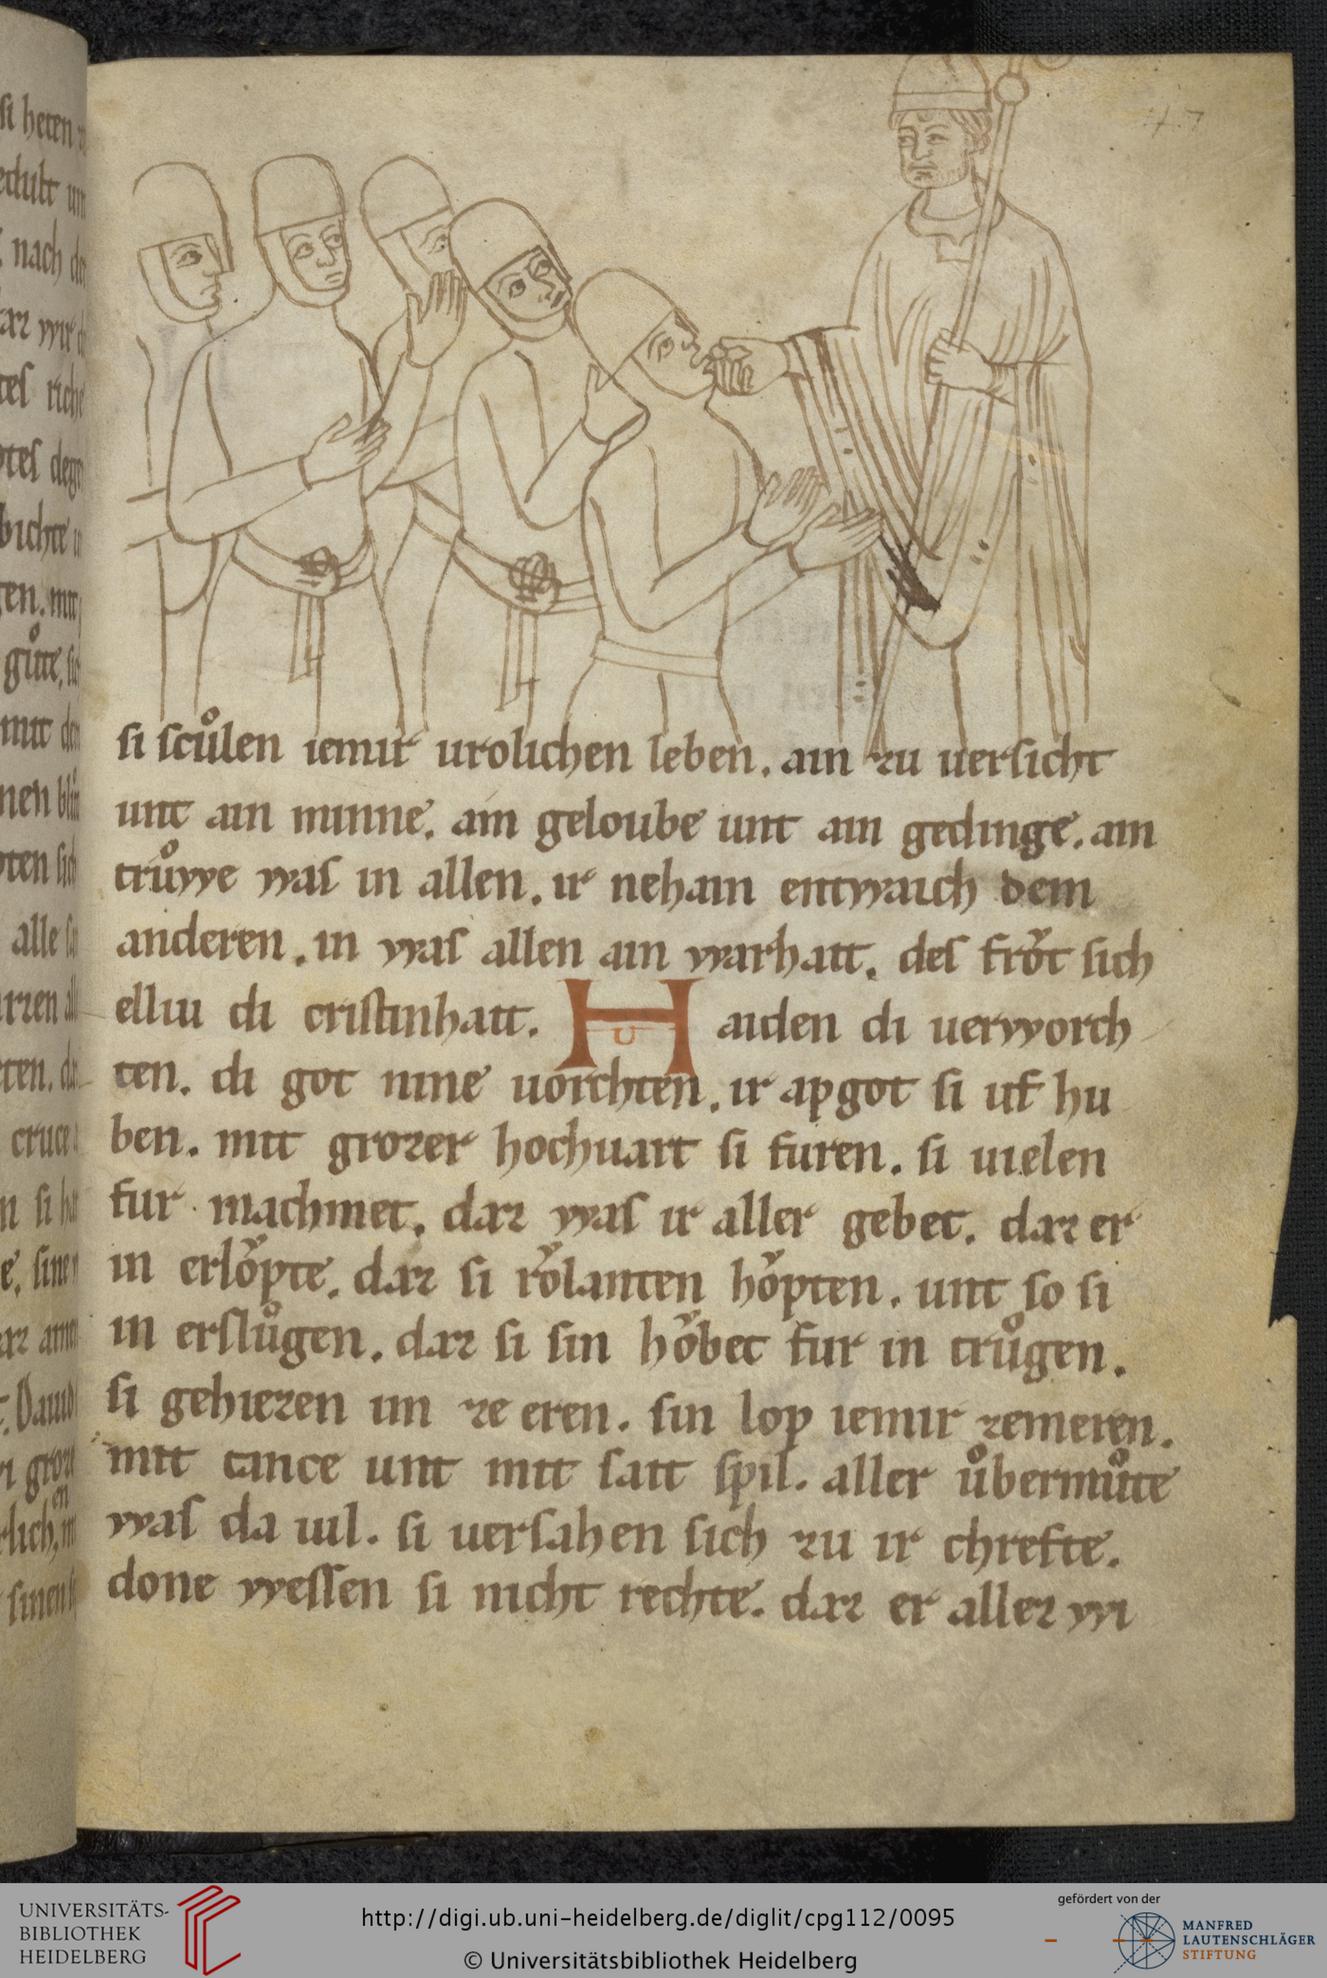 47
si scůlen iemir urolichen leben. ain zu uersicht
unt ain minne. ain geloube unt ain gedinge. ain
trůwe was in allen. ir nehain entwaich dem
anderen. in was allen ain warhait. des frǒt sich
elliu di cristinhait. Haiden di uerworch
ten. di got nine uorchten. ir apgot si uf hu
ben. mit grozer hochuart si furen. si uielen
fur machmet. daz was ir aller gebet. daz er
in erlǒpte. daz si rǒlanten hǒpten. unt so si
in erslůgen. daz si sin hǒbet fur in trůgen.
si gehiezen im ze eren. sin lop iemir zemeren.
mit tance unt mit sait spil. aller ůbermůte
was da uil. si uersahen sich zu ir chrefte.
done wessen si nicht rechte. daz er allez wi
si heten
nach
riche
bichte
gůte
mit
alle
cruce
UNIVERSITÄTS-
BIBLIOTHEK
HEIDELBERG
http://digi.ub.uni-heidelberg.de/diglit/cpg112/0095
© Universitätsbibliothek Heidelberg
gefördert von der
MANFRED
LAUTENSCHLÄGER
STIFTUNG